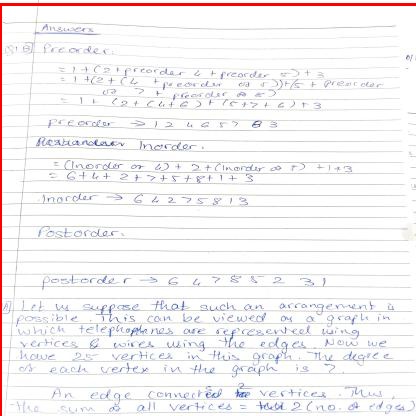 Answers
Q1 B) Preorder:
= 1 + (2 + preorder 4 + preorder 5) + 3
= 1 + (2 + (4 + preorder of 5)) + (5 + preorder
of 7 + preorder of 8)
= 1 + (2 + (4 + 6) + (5 + 7 + 6) + 3
preorder → 1 2 4 6 5 7 8 3
Inorder.
= (Inorder of 4) + 2 + (Inorder of 5) + 1 + 3
= 6 + 4 + 2 + 7 + 5 + 8 + 1 + 3
Inorder → 6 4 2 7 5 8 1 3
Postorder.
postorder → 6 4 7 8 5 2 3 1
A) Let us suppose that such an arrangement is
possible. This can be viewed as a graph in
which telephones are represented using
vertices & wires using the edges. Now we
have 25 vertices in this graph. The degree
of each vertex in the graph is 7.
An edge connects 2 vertices. Thus,
the sum of all vertices = 2 (no. of edges)